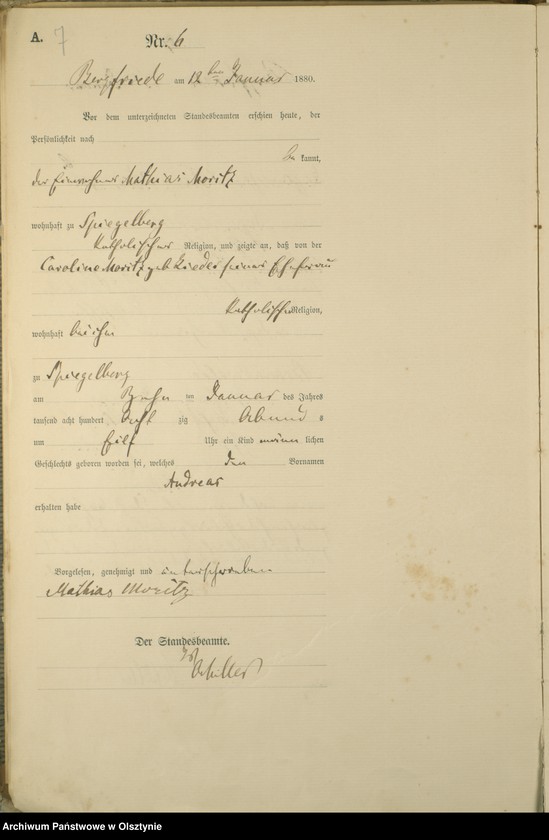 A. 7
Nr. 6
Bergfriede am 12ten Januar 1880.
Vor dem unterzeichneten Standesbeamten erschien heute, der
Persönlichkeit nach
be kannt,
der Einwohner Mathias Moritz
wohnhaft zu Spiegelberg
katholischer Religion, und zeigte an, daß von der
Caroline Moritz geb. seiner Ehefrau
katholischer Religion,
wohnhaft bei ihm
zu Spiegelberg
am Januar des Jahres
tausend acht hundert acht zig Abend s
um Eilf Uhr ein Kind männ lichen
Geschlechts geboren worden sei, welches den Vornamen
Andreas
erhalten habe
Vorgelesen, genehmigt und unterschrieben
Mathias Moritz
Der Standesbeamte.
Archiwum Państwowe w Olsztynie